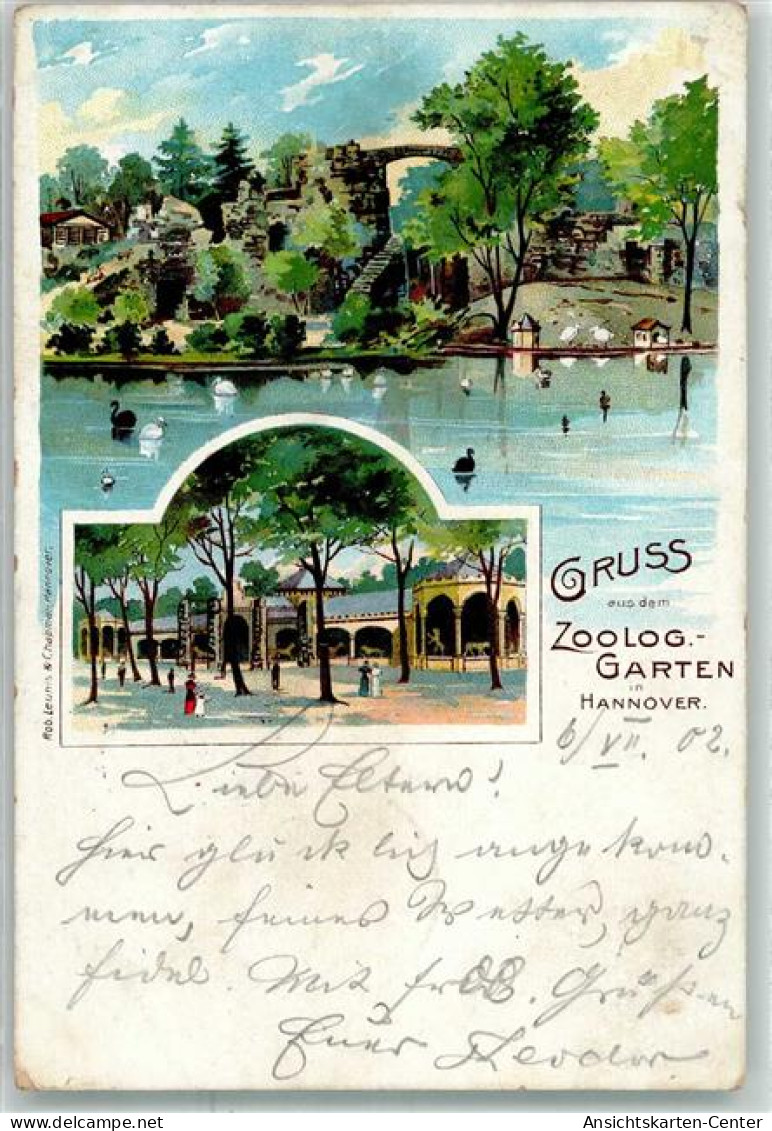 GRUSS
aus dem
ZOOLOG.-
GARTEN
in
HANNOVER.
Rob. Leunis & Chapman, Hannover.
6/VII. 02.
Liebe Eltern!
Hier glücklich angekom-
men, feines Wetter, ganz
fidel. Mit frdl. Grüßen
Euer Theodor
Ansichtskarten-Center